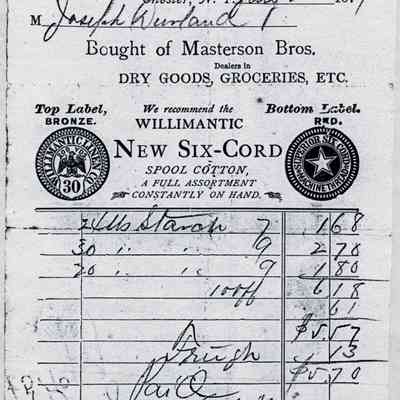 Chester, N. Y.
M Joseph Durland
Bought of Masterson Bros.
Dealers in
DRY GOODS, GROCERIES, ETC.
Top Label, We recommend the Bottom Label.
BRONZE. WILLIMANTIC RED.
NEW SIX-CORD
SPOOL COTTON,
A FULL ASSORTMENT
CONSTANTLY ON HAND.
WILLIMANTIC LINEN CO
30
SUPERIOR SIX CORD
MACHINE THREAD
24 lbs Starch 7 1 68
30 " " 9 2 70
20 " " 9 1 80
10 off 6 18
61
$5.57
Freight 13
$5.70
Paid